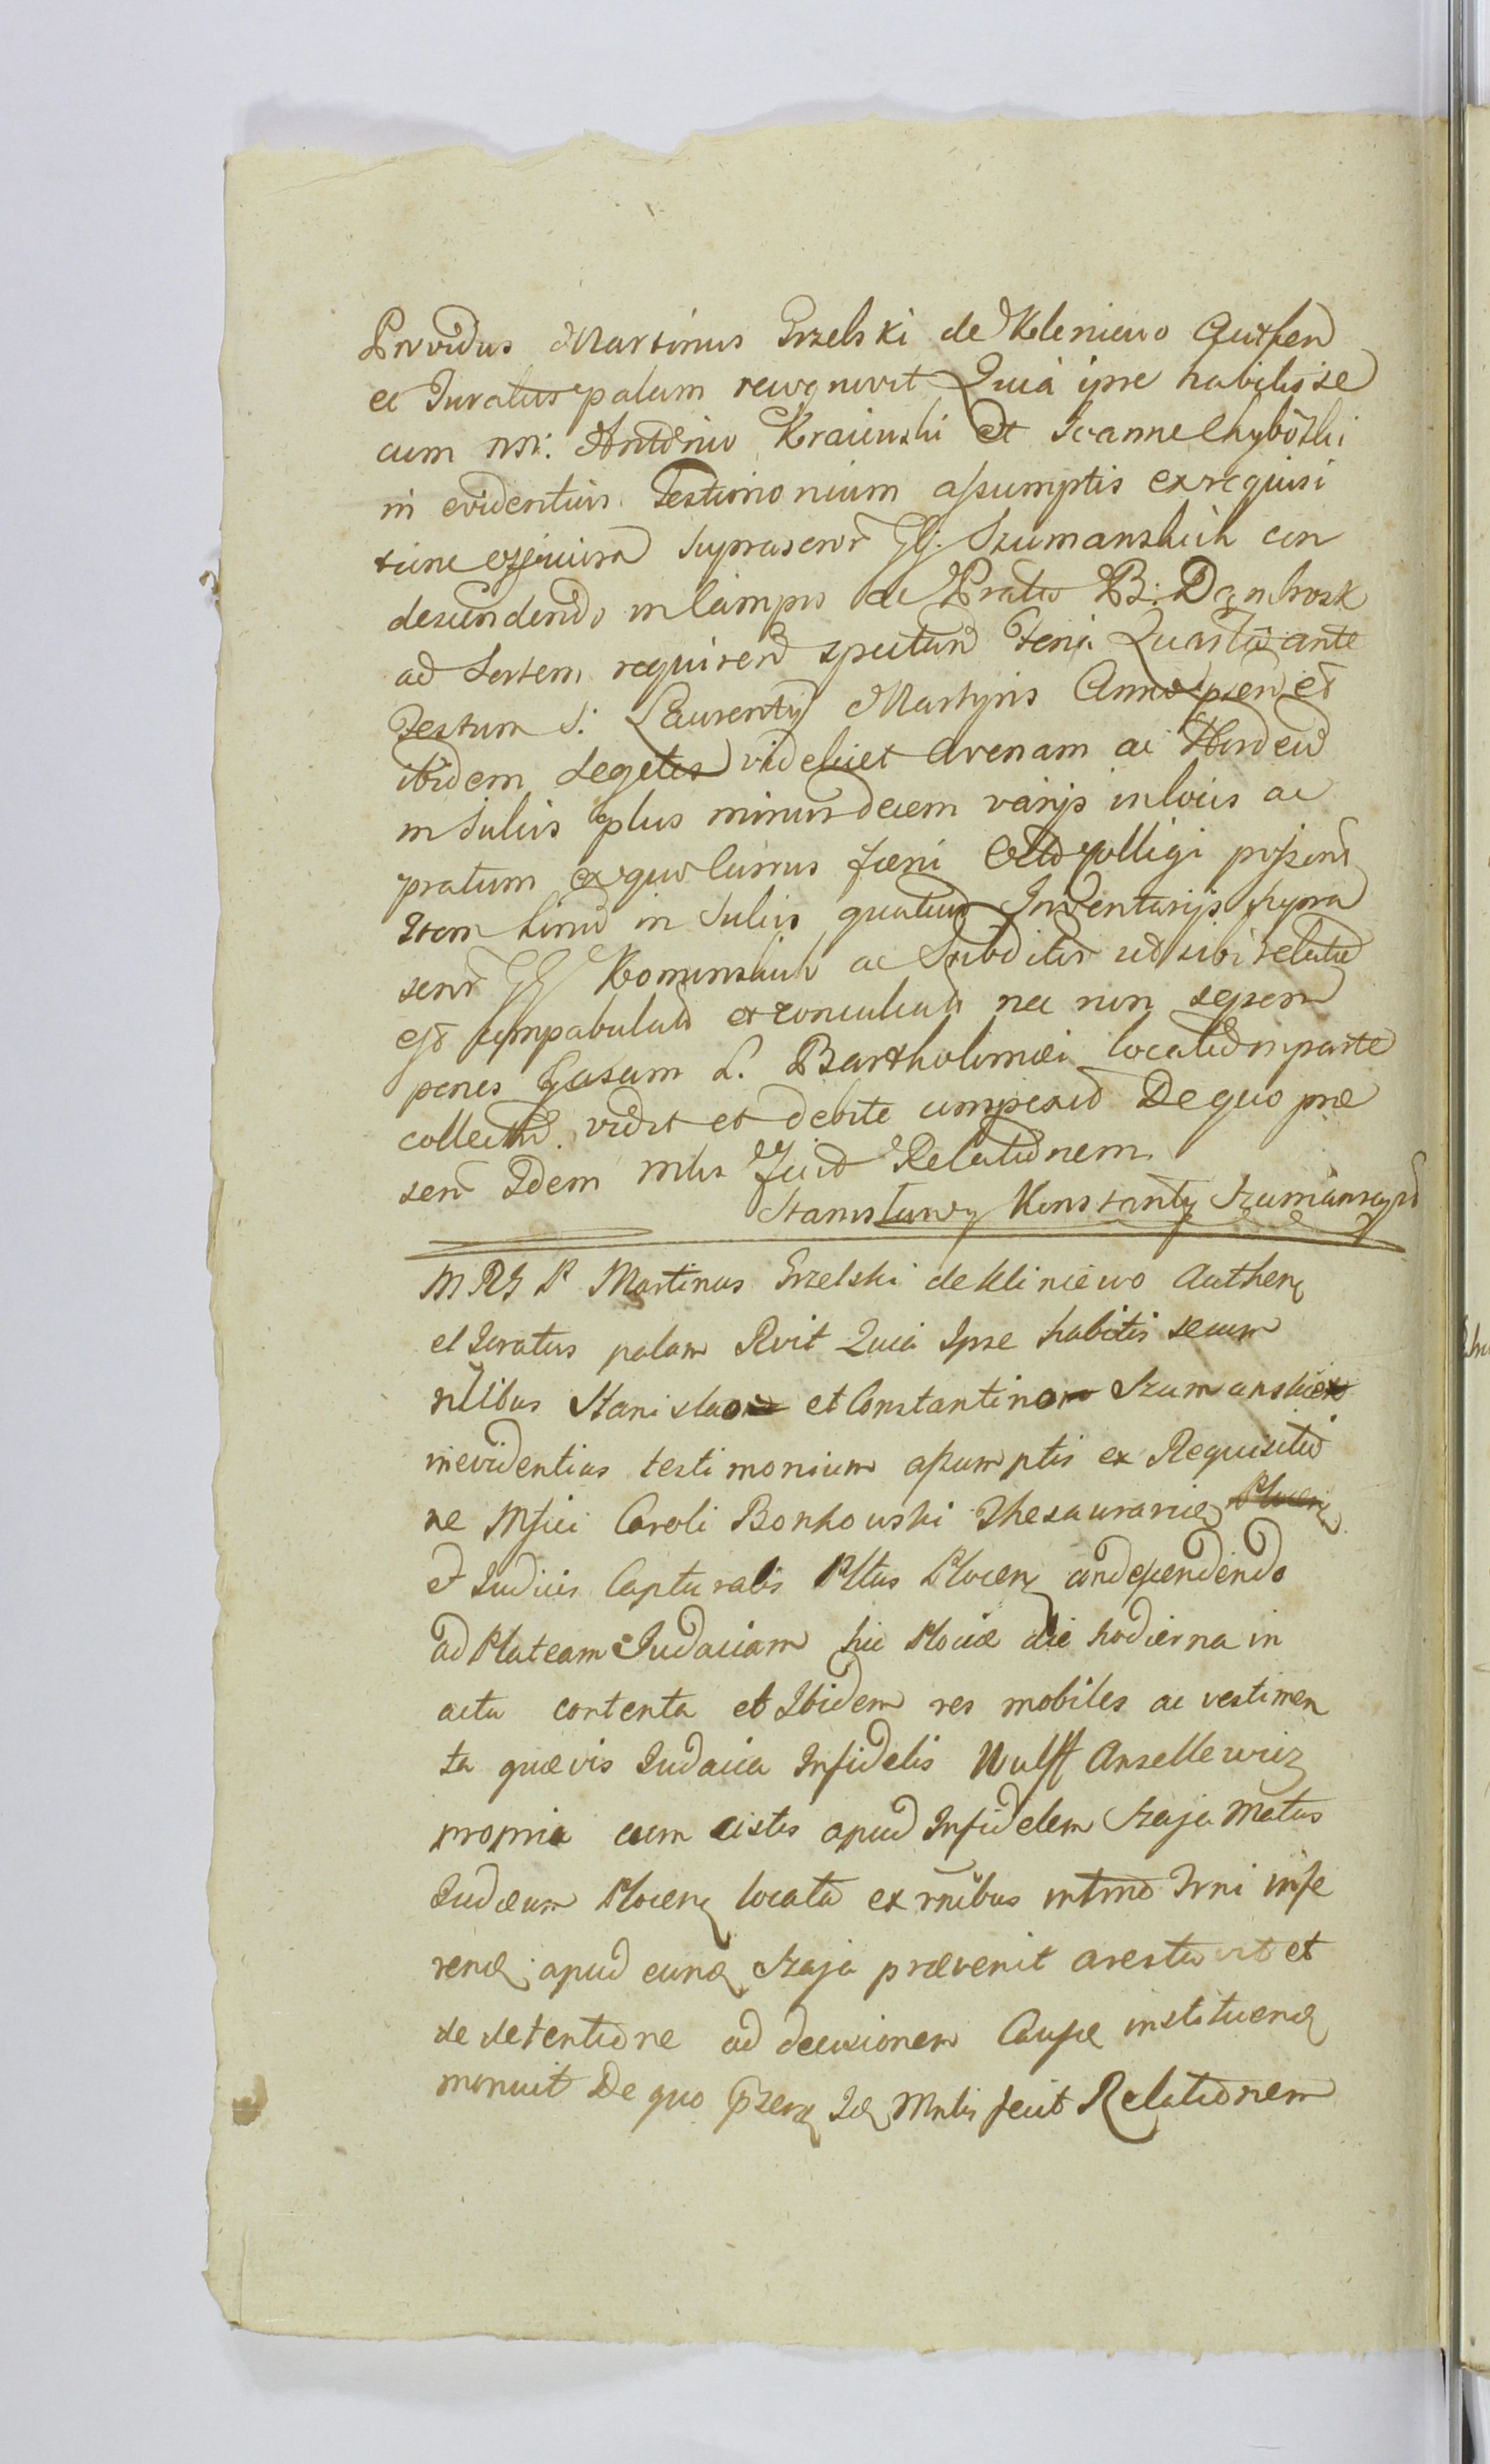 Providus Martinus Grzelski de Kleniewo Authen
et Juratus palam recognovit Quia ipse habitis se
cum nn: Antonio Kraiewski et Joanne Chybotki
in evidentius Testimonium assumptis ex requisi
tione suprascrr GG. Szumanskich con
descendendo in Campos ac Prata B: Dąmbrosk
ad Sortem requiren spectan Feria Quarta ante
Festum S: Laurentij Martyris Anno psen et
ibidem Segetes videlicet Avenam ac Hordeu
in Sulcis plus minus decem varijs in locis ac
pratum ex quo Currus foeni colligi possent
Item Linu in Sulcis quatuor Inventarijs supra
scrr GG Kominskich ac Subditis ut sibi relatu
est compabulat et conculcat nec non sepem
penes Casam S. Bartholomei locatu in parte
collect vidit et debite comperuit De quo præ
sen Idem mlis fecit Relationem
Stanisławy Konstanty Szumanscy
M RG P Martinus Grzelski de Kliniewo Authen
et Juratus palam Rvit Quia Ipse habitis secum
nllbus Stanislao et Constantino Szumanskie
in evidentius testimonium assumptis ex Requisitio
ne Mfici Caroli Bonkowski Thesaurarie Plocen
et Judicis Capturalis Pltus Plocen condescendendo
ad Plateam Judaicam hic Plociæ die hodierna in
actu contenta et Ibidem res mobiles ac vestimen
ta quævis Judaica Infidelis Wulff Ansellewicz
propria cum cistis apud Infidelem Szaja Matus
Judæum Plocen locata ex rnibus intmo Irni infe
rend apud eund Szaja prævenit arestavit et
de detentione ad decisionem Causæ instituend
monuit De quo pzen Id Mnlis fecit Relationem